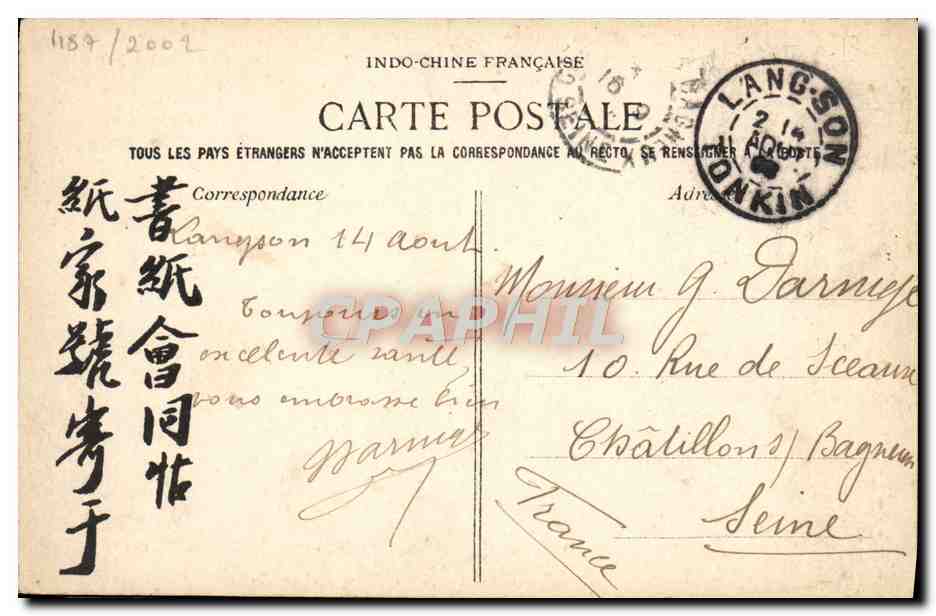 4187/2002
INDO-CHINE FRANÇAISE
CARTE POSTALE
TOUS LES PAYS ÉTRANGERS N'ACCEPTENT PAS LA CORRESPONDANCE AU RECTO, SE RENSEIGNER A LA POSTE
Correspondance
Adresse
LANG-SON
TONKIN
書紙會同帖
紙家號寄于
Langson 14 aout
Toujours en
excelente santé,
vous embrasse bien
Darnige
Monsieur G. Darnige
10. Rue de Sceaux
Châtillons/Bagneux
Seine
France
CPAPHIL